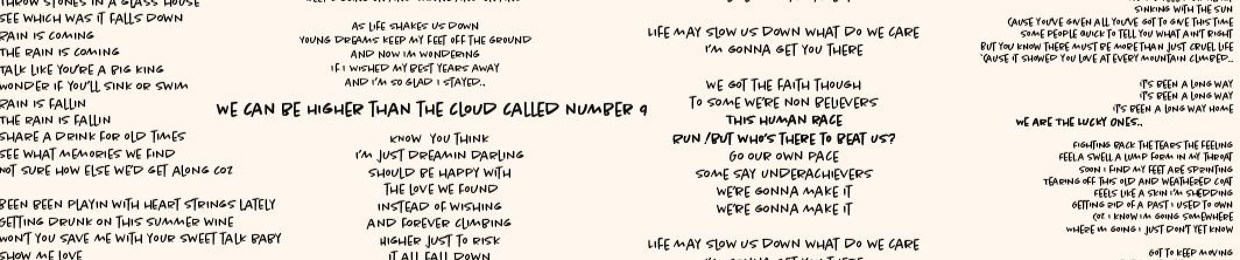 THROW STONES IN A GLASS HOUSE
SEE WHICH WAS IT FALLS DOWN
RAIN IS COMING
THE RAIN IS COMING
TALK LIKE YOU'RE A BIG KING
WONDER IF YOU'LL SINK OR SWIM
RAIN IS FALLIN
THE RAIN IS FALLIN
SHARE A DRINK FOR OLD TIMES
SEE WHAT MEMORIES WE FIND
NOT SURE HOW ELSE WE'D GET ALONG COZ
BEEN BEEN PLAYIN WITH HEART STRINGS LATELY
GETTING DRUNK ON THIS SUMMER WINE
WON'T YOU SAVE ME WITH YOUR SWEET TALK BABY
SHOW ME LOVE
AS LIFE SHAKES US DOWN
YOUNG DREAMS KEEP MY FEET OFF THE GROUND
AND NOW IM WONDERING
IF I WISHED MY BEST YEARS AWAY
AND I'M SO GLAD I STAYED..
WE CAN BE HIGHER THAN THE CLOUD CALLED NUMBER 9
KNOW YOU THINK
I'M JUST DREAMIN DARLING
SHOULD BE HAPPY WITH
THE LOVE WE FOUND
INSTEAD OF WISHING
AND FOREVER CLIMBING
HIGHER JUST TO RISK
IT ALL FALL DOWN
LIFE MAY SLOW US DOWN WHAT DO WE CARE
I'M GONNA GET YOU THERE
WE GOT THE FAITH THOUGH
TO SOME WE'RE NON BELIEVERS
THIS HUMAN RACE
RUN /BUT WHO'S THERE TO BEAT US?
GO OUR OWN PACE
SOME SAY UNDERACHIEVERS
WE'RE GONNA MAKE IT
WE'RE GONNA MAKE IT
LIFE MAY SLOW US DOWN WHAT DO WE CARE
SINKING WITH THE SUN
CAUSE YOU'VE GIVEN ALL YOU'VE GOT TO GIVE THIS TIME
SOME PEOPLE QUICK TO TELL YOU WHAT AIN'T RIGHT
BUT YOU KNOW THERE MUST BE MORE THAN JUST CRUEL LIFE
'CAUSE IT SHOWED YOU LOVE AT EVERY MOUNTAIN CLIMBED..
IT'S BEEN A LONG WAY
IT'S BEEN A LONG WAY
IT'S BEEN A LONG WAY HOME
WE ARE THE LUCKY ONES..
FIGHTING BACK THE TEARS THE FEELING
FEEL A SWELL A LUMP FORM IN MY THROAT
SOON I FIND MY FEET ARE SPRINTING
TEARING OFF THIS OLD AND WEATHERED COAT
FEELS LIKE A SKIN I'M SHEDDING
GETTING RID OF A PAST I USED TO OWN
COZ I KNOW IM GOING SOMEWHERE
WHERE IM GOING I JUST DON'T YET KNOW
GOT TO KEEP MOVING